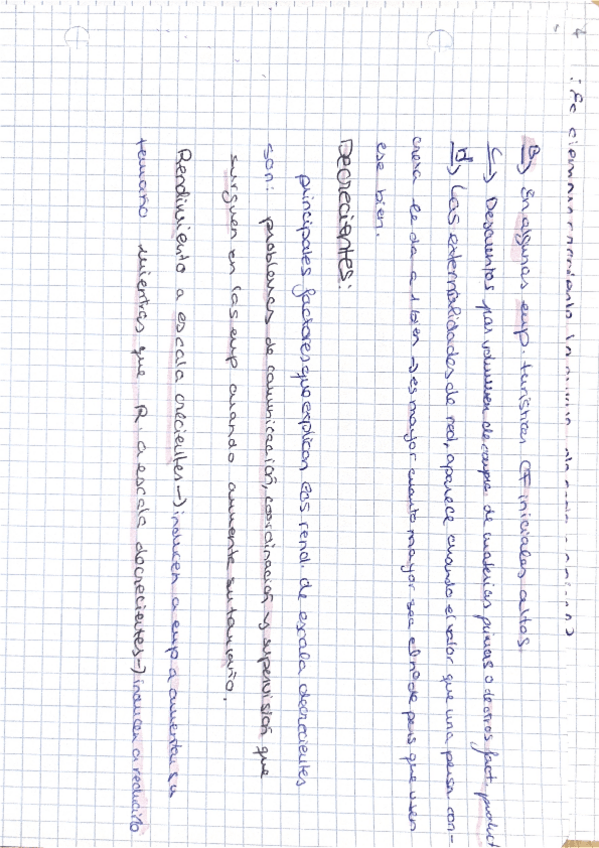 B) En algunas emp. turísticas CF iniciales altos.
C) Descuentos por volumen de compra de materias primas o de otros fact. product
D) Las externalidades de red, aparece cuando el valor que una persn con-
ere le da a 1 bien → es mayor cuanto mayor sea el nº de pers que usen
ese bien.
Decrecientes:
principales factores que explican los rend. de escala decrecientes
son: problemas de comunicación, coordinación y supervisión que
surguen en las emp cuando aumenta su tamaño.
Rendimiento a escala crecientes → inducen a emp a aumentar su
tamaño mientras que R. a escala decrecientes → inducen a reducirlo